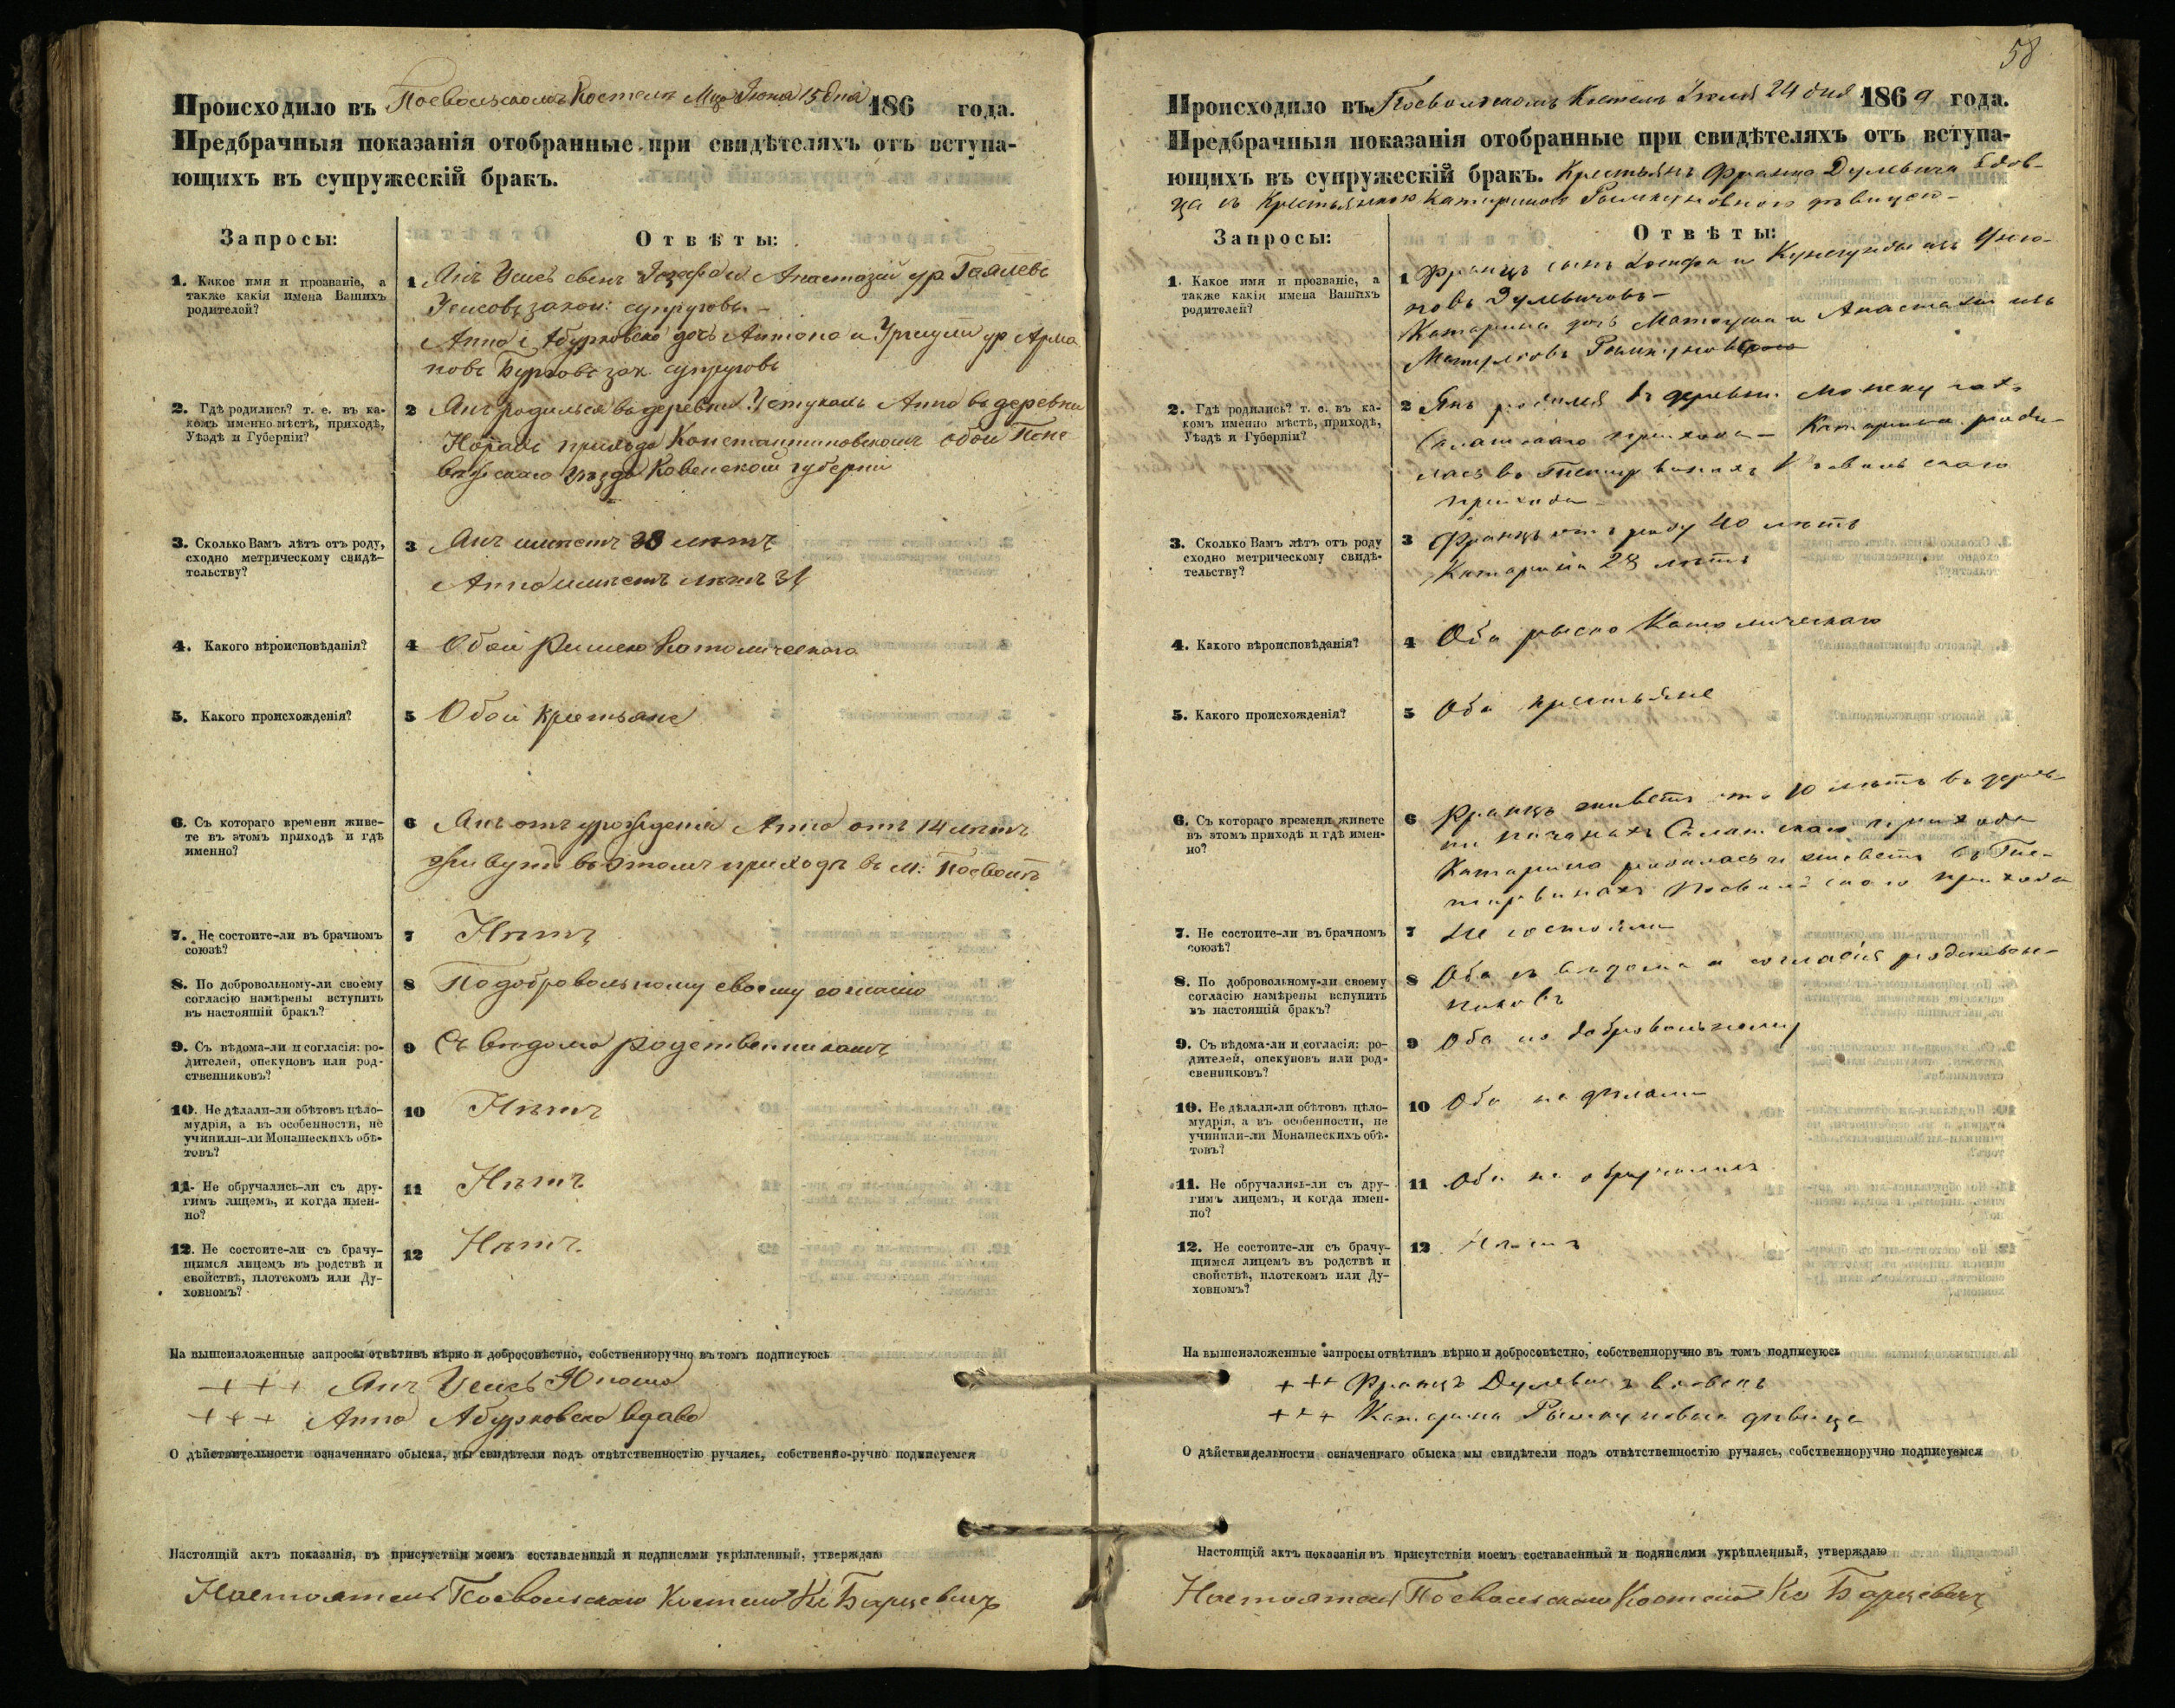 Происходило въ Поевольскомъ Костелѣ Мца Іюня 15 дня 186 года.
Предбрачныя показанія отобранные при свидѣтеляхъ отъ вступа-
ющихъ въ супружескій бракъ.
Запросы:
Отвѣты:
1. Какое имя и прозваніе, а
также какія имена Вашихъ
родителей?
1 Анъ сынъ и Анастазіи ур
закон: супруговъ
Анна дочь Антона и ур
зак. супруговъ
2. Гдѣ родились? т. е. въ ка-
комъ именно мѣстѣ, приходѣ,
Уѣздѣ и Губерніи?
2 Анъ родился въ деревни Анна въ деревни
приходе Константиновскомъ обои Поне
вѣжскаго уѣзда Ковенской губерніи
3. Сколько Вамъ лѣтъ отъ роду,
сходно метрическому свидѣ-
тельству?
3 Анъ имѣетъ лѣтъ
Анна имѣетъ лѣтъ 31
4. Какого вѣроисповѣданія?
4 Обои Римско Католическаго
5. Какого происхожденія?
5 Обои крестьяне
6. Съ котораго времени живе-
те въ этомъ приходѣ и гдѣ
именно?
6 Анъ отъ урожденія Анна отъ 14 лѣтъ
живутъ въ этомъ приходѣ въ м:
7. Не состоите-ли въ брачномъ
союзѣ?
7 Нѣтъ
8. По добровольному-ли своему
согласію намѣрены вступить
въ настоящій бракъ?
8 По добровольному своему согласію
9. Съ вѣдома-ли и согласія: ро-
дителей, опекуновъ или род-
ственниковъ?
9 Съ вѣдома родственниковъ
10. Не дѣлали-ли обѣтовъ цѣло-
мудрія, а въ особенности, не
учинили-ли Монашескихъ обѣ-
товъ?
10 Нѣтъ
11. Не обручались-ли съ дру-
гимъ лицемъ, и когда имен-
но?
11 Нѣтъ
12. Не состоите-ли съ брачу-
щимся лицемъ въ родствѣ и
свойствѣ, плотскомъ или Ду-
ховномъ?
12 Нѣтъ.
На вышеизложенные запросы отвѣтивъ вѣрно и добросовѣстно, собственноручно въ томъ подписуюсь
+ + + Анъ Юноша
+ + + Анна вдова
О дѣйствительности означеннаго обыска, мы свидѣтели подъ отвѣтственностію ручаясь, собственно-ручно подписуемся
Настоящій актъ показанія, въ присутствіи моемъ составленный и подписями укрѣпленный, утверждаю
Настоятель Поевольскаго Костела Кс Барцевичъ
58
Происходило въ Поевольскомъ Костелѣ 24 дня 1869 года.
Предбрачныя показанія отобранные при свидѣтеляхъ отъ вступа-
ющихъ въ супружескій бракъ. Крестьянъ Франца Дулевича вдов-
ца съ Крестьянкою Катариною дѣвицею
Запросы:
Отвѣты:
1. Какое имя и прозваніе, а
также какія имена Вашихъ
родителей?
1 Францъ сынъ Іосифа и Кунегунды изъ
Дулевичовъ
Катарина дочь Матеуша и Анастазіи изъ
2. Гдѣ родились? т. е. въ ка-
комъ именно мѣстѣ, приходѣ,
Уѣздѣ и Губерніи?
2 Янъ родился въ деревни
прихода Катарина роди-
лась въ
прихода
3. Сколько Вамъ лѣтъ отъ роду
сходно метрическому свидѣ-
тельству?
3 Францъ отъ роду 40 лѣтъ
Катарина 28 лѣтъ
4. Какого вѣроисповѣданія?
4 Оба рыско Католическаго
5. Какого происхожденія?
5 Оба крестьяне
6. Съ котораго времени живете
въ этомъ приходѣ и гдѣ имен-
но?
6 Францъ живетъ 10 лѣтъ въ дерев-
ни прихода
Катарина родилась и живетъ въ
прихода
7. Не состоите-ли въ брачномъ
союзѣ?
7 Не состояли
8. По добровольному-ли своему
согласію намѣрены вспупить
въ настоящій бракъ?
8 Оба съ вѣдома и согласія родствен-
никовъ
9. Съ вѣдома-ли и согласія: ро-
дителей, опекуновъ или род-
свенниковъ?
9 Оба по добровольному
10. Не дѣлали-ли обѣтовъ цѣло-
мудрія, а въ особенности, не
учинили-ли Монашескихъ обѣ-
товъ?
10 Оба не дѣлали
11. Не обручались-ли съ дру-
гимъ лицемъ, и когда имен-
но?
11 Оба не обручались
12. Не состоите-ли съ брачу-
щимся лицемъ въ родствѣ и
свойствѣ, плотскомъ или Ду-
ховномъ?
12 Нѣтъ
На вышеизложенные запросы отвѣтивъ вѣрно и добросовѣстно, собственноручно въ томъ подписуюсь
+ + + Францъ Дулевичъ вдовецъ
+ + + Катарина дѣвица
О дѣйствидельности означеннаго обыска мы свидѣтели подъ отвѣтственностію ручаясь, собственноручно подписуемся
Настоящій актъ показанія въ присутствіи моемъ составленный и подписями укрѣпленный, утверждаю
Настоятель Поевольскаго Костела Кс Барцевичъ